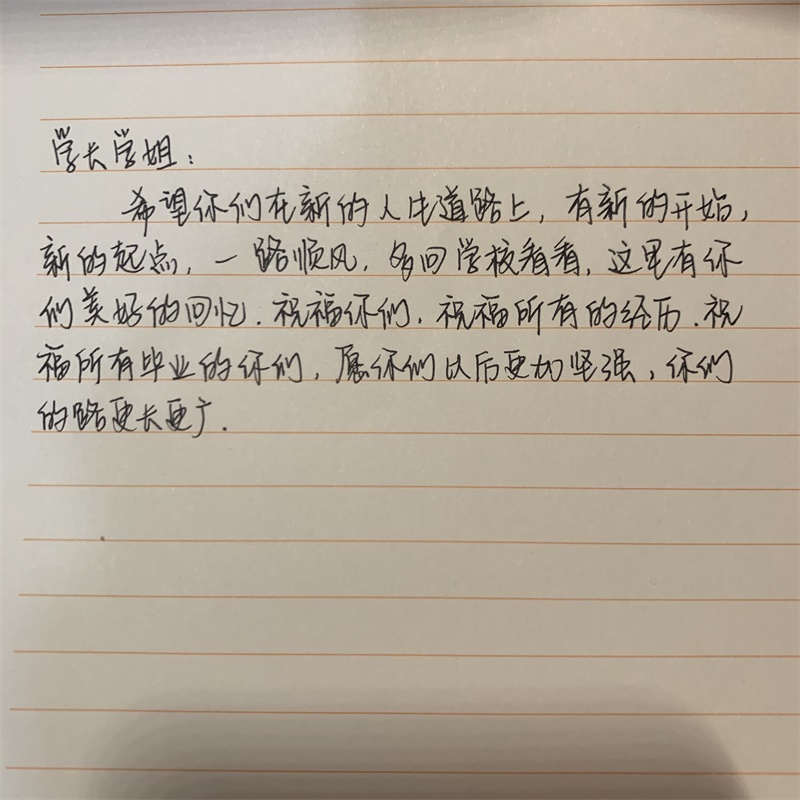 学长学姐：
希望你们在新的人生道路上，有新的开始，
新的起点，一路顺风，多回学校看看，这里有你
们美好的回忆．祝福你们．祝福所有的经历．祝
福所有毕业的你们，愿你们以后更加坚强，你们
的路更长更广．